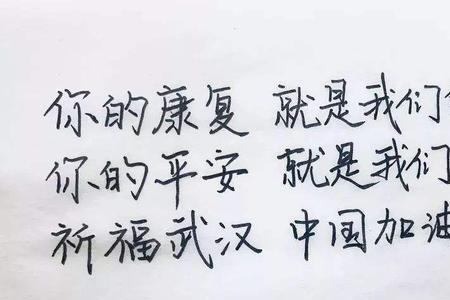 你的康复 就是我们
你的平安 就是我们
祈福武汉 中国加油